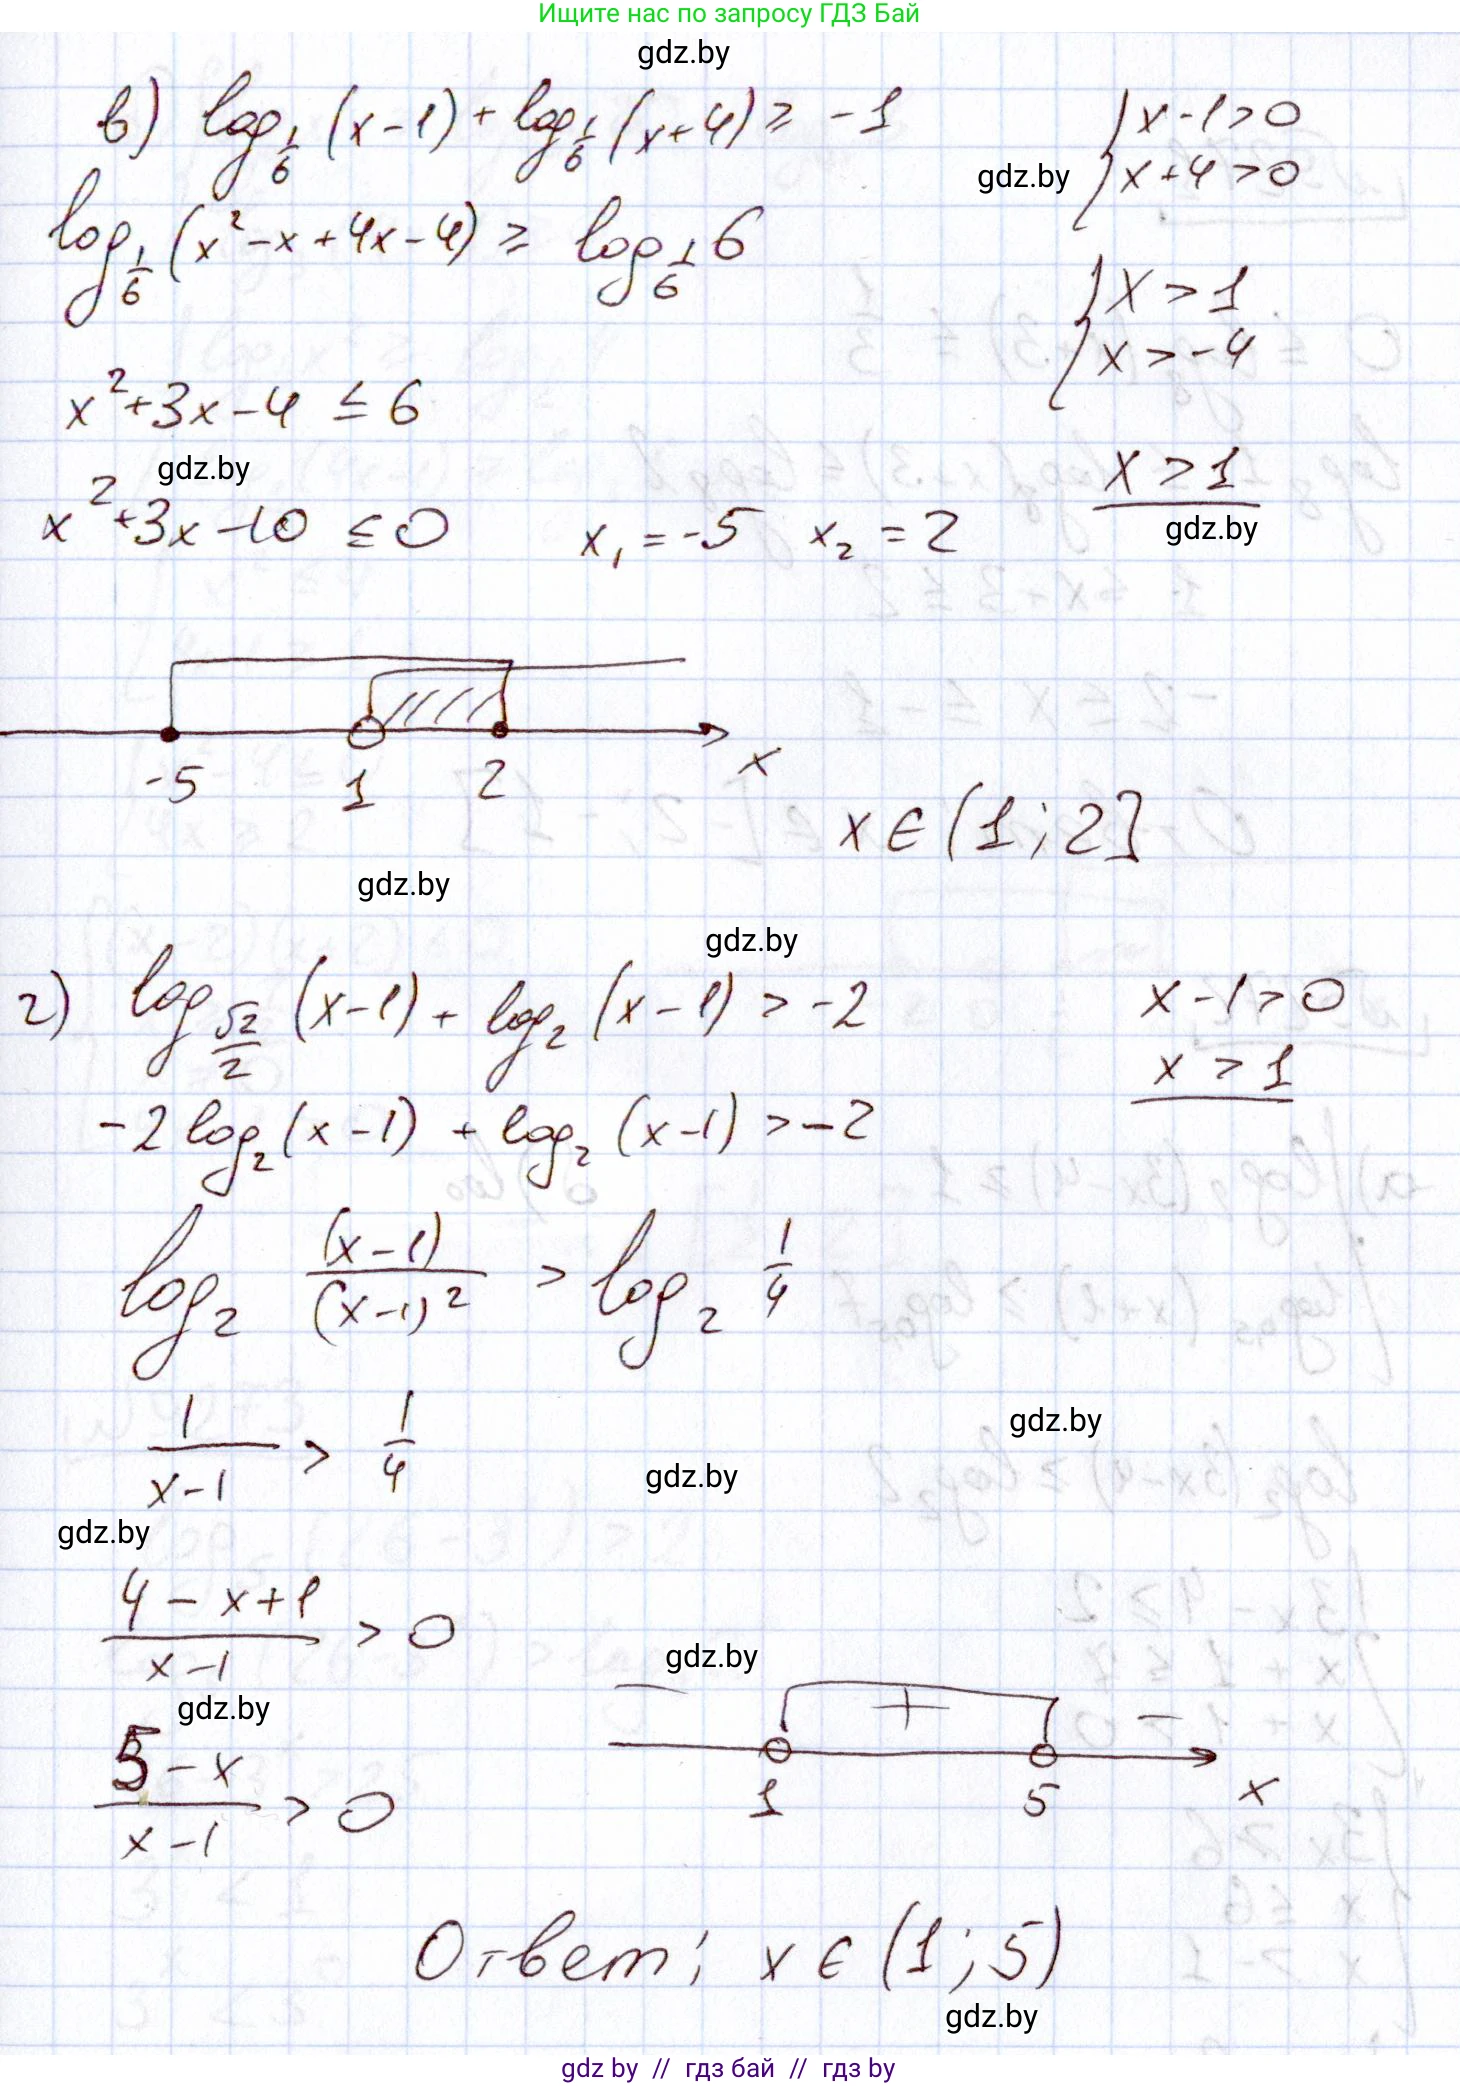 Ищите нас по запросу ГДЗ Бай
gdz.by
в) log_{1/6} (x-1) + log_{1/6} (x+4) ≥ -1
{ x-1>0
gdz.by
x+4>0
log_{1/6} (x²-x+4x-4) ≥ log_{1/6} 6
{ x > 1
x > -4
x²+3x-4 ≤ 6
x > 1
gdz.by
gdz.by
x²+3x-10 ≤ 0 x₁ = -5 x₂ = 2
-5 1 2 x
x ∈ (1; 2]
gdz.by
gdz.by
г) log_{√2/2} (x-1) + log₂ (x-1) > -2
x-1>0
x > 1
-2 log₂ (x-1) + log₂ (x-1) > -2
log₂ (x-1)/(x-1)² > log₂ 1/4
1/(x-1) > 1/4
gdz.by
gdz.by
gdz.by
(4-x+1)/(x-1) > 0
gdz.by
gdz.by
− + −
(5-x)/(x-1) > 0
1 5 x
Ответ: x ∈ (1; 5)
gdz.by
gdz by // гдз бай // гдз by